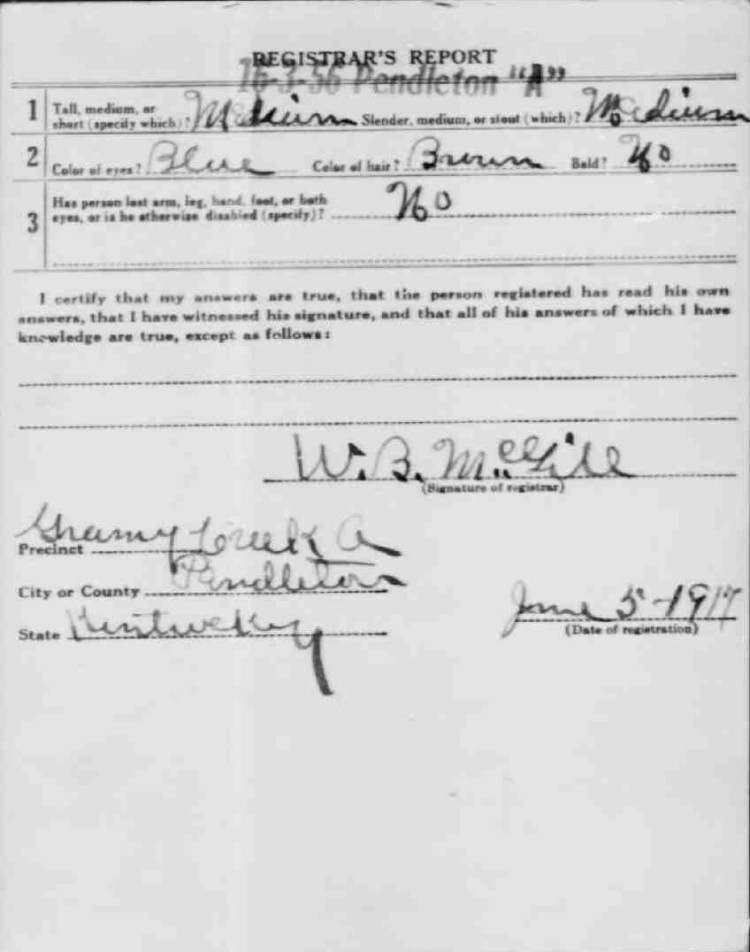 REGISTRAR'S REPORT
16-3-56 Pendleton "A"
1 Tall, medium, or short (specify which)? Medium Slender, medium, or stout (which)? Medium
2 Color of eyes? Blue Color of hair? Brown Bald? No
3 Has person lost arm, leg, hand, foot, or both
eyes, or is he otherwise disabled (specify)? No
I certify that my answers are true, that the person registered has read his own
answers, that I have witnessed his signature, and that all of his answers of which I have
knowledge are true, except as follows:
W. B. McGill
(Signature of registrar)
Precinct Creek A
City or County Pendleton
State Kentucky
June 5-1917
(Date of registration)